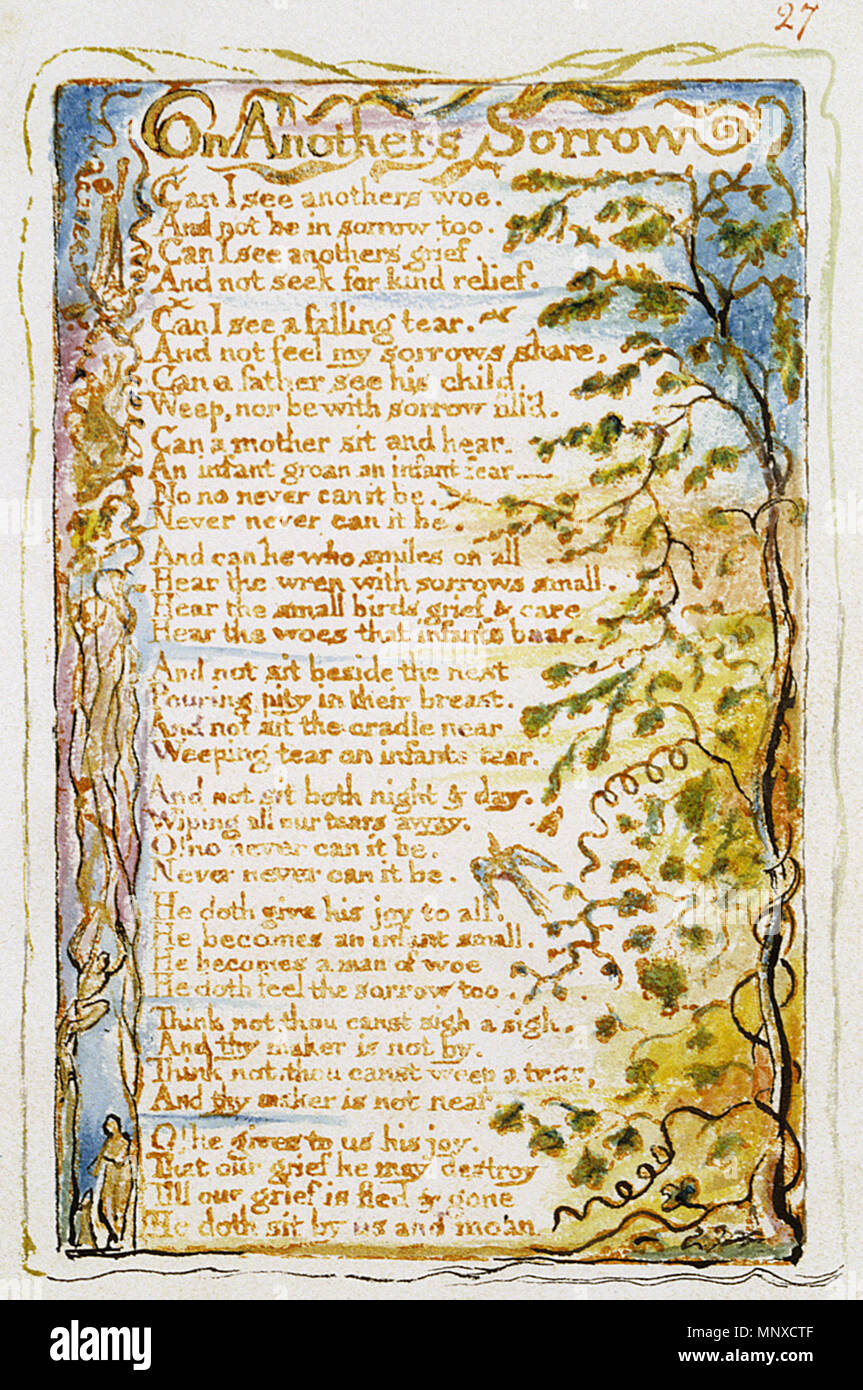 27
On Anothers Sorrow
Can I see anothers woe.
And not be in sorrow too.
Can I see anothers grief.
And not seek for kind relief.
Can I see a falling tear.
And not feel my sorrows share,
Can a father see his child.
Weep, nor be with sorrow fill'd.
Can a mother sit and hear.
An infant groan an infant fear
No no never can it be.
Never never can it be.
And can he who smiles on all
Hear the wren with sorrows small.
Hear the small birds grief & care
Hear the woes that infants bear
And not sit beside the next
Pouring pity in their breast.
And not sit the cradle near
Weeping tear on infants tear.
And not sit both night & day.
Wiping all our tears away.
O! no never can it be.
Never never can it be.
He doth give his joy to all.
He becomes an infant small.
He becomes a man of woe
He doth feel the sorrow too.
Think not, thou canst sigh a sigh.
And thy maker is not by.
Think not, thou canst weep a tear,
And thy maker is not near
O! he gives to us his joy.
That our grief he may destroy
Till our grief is fled & gone
He doth sit by us and moan
alamy
Image ID: MNXCTF
www.alamy.com